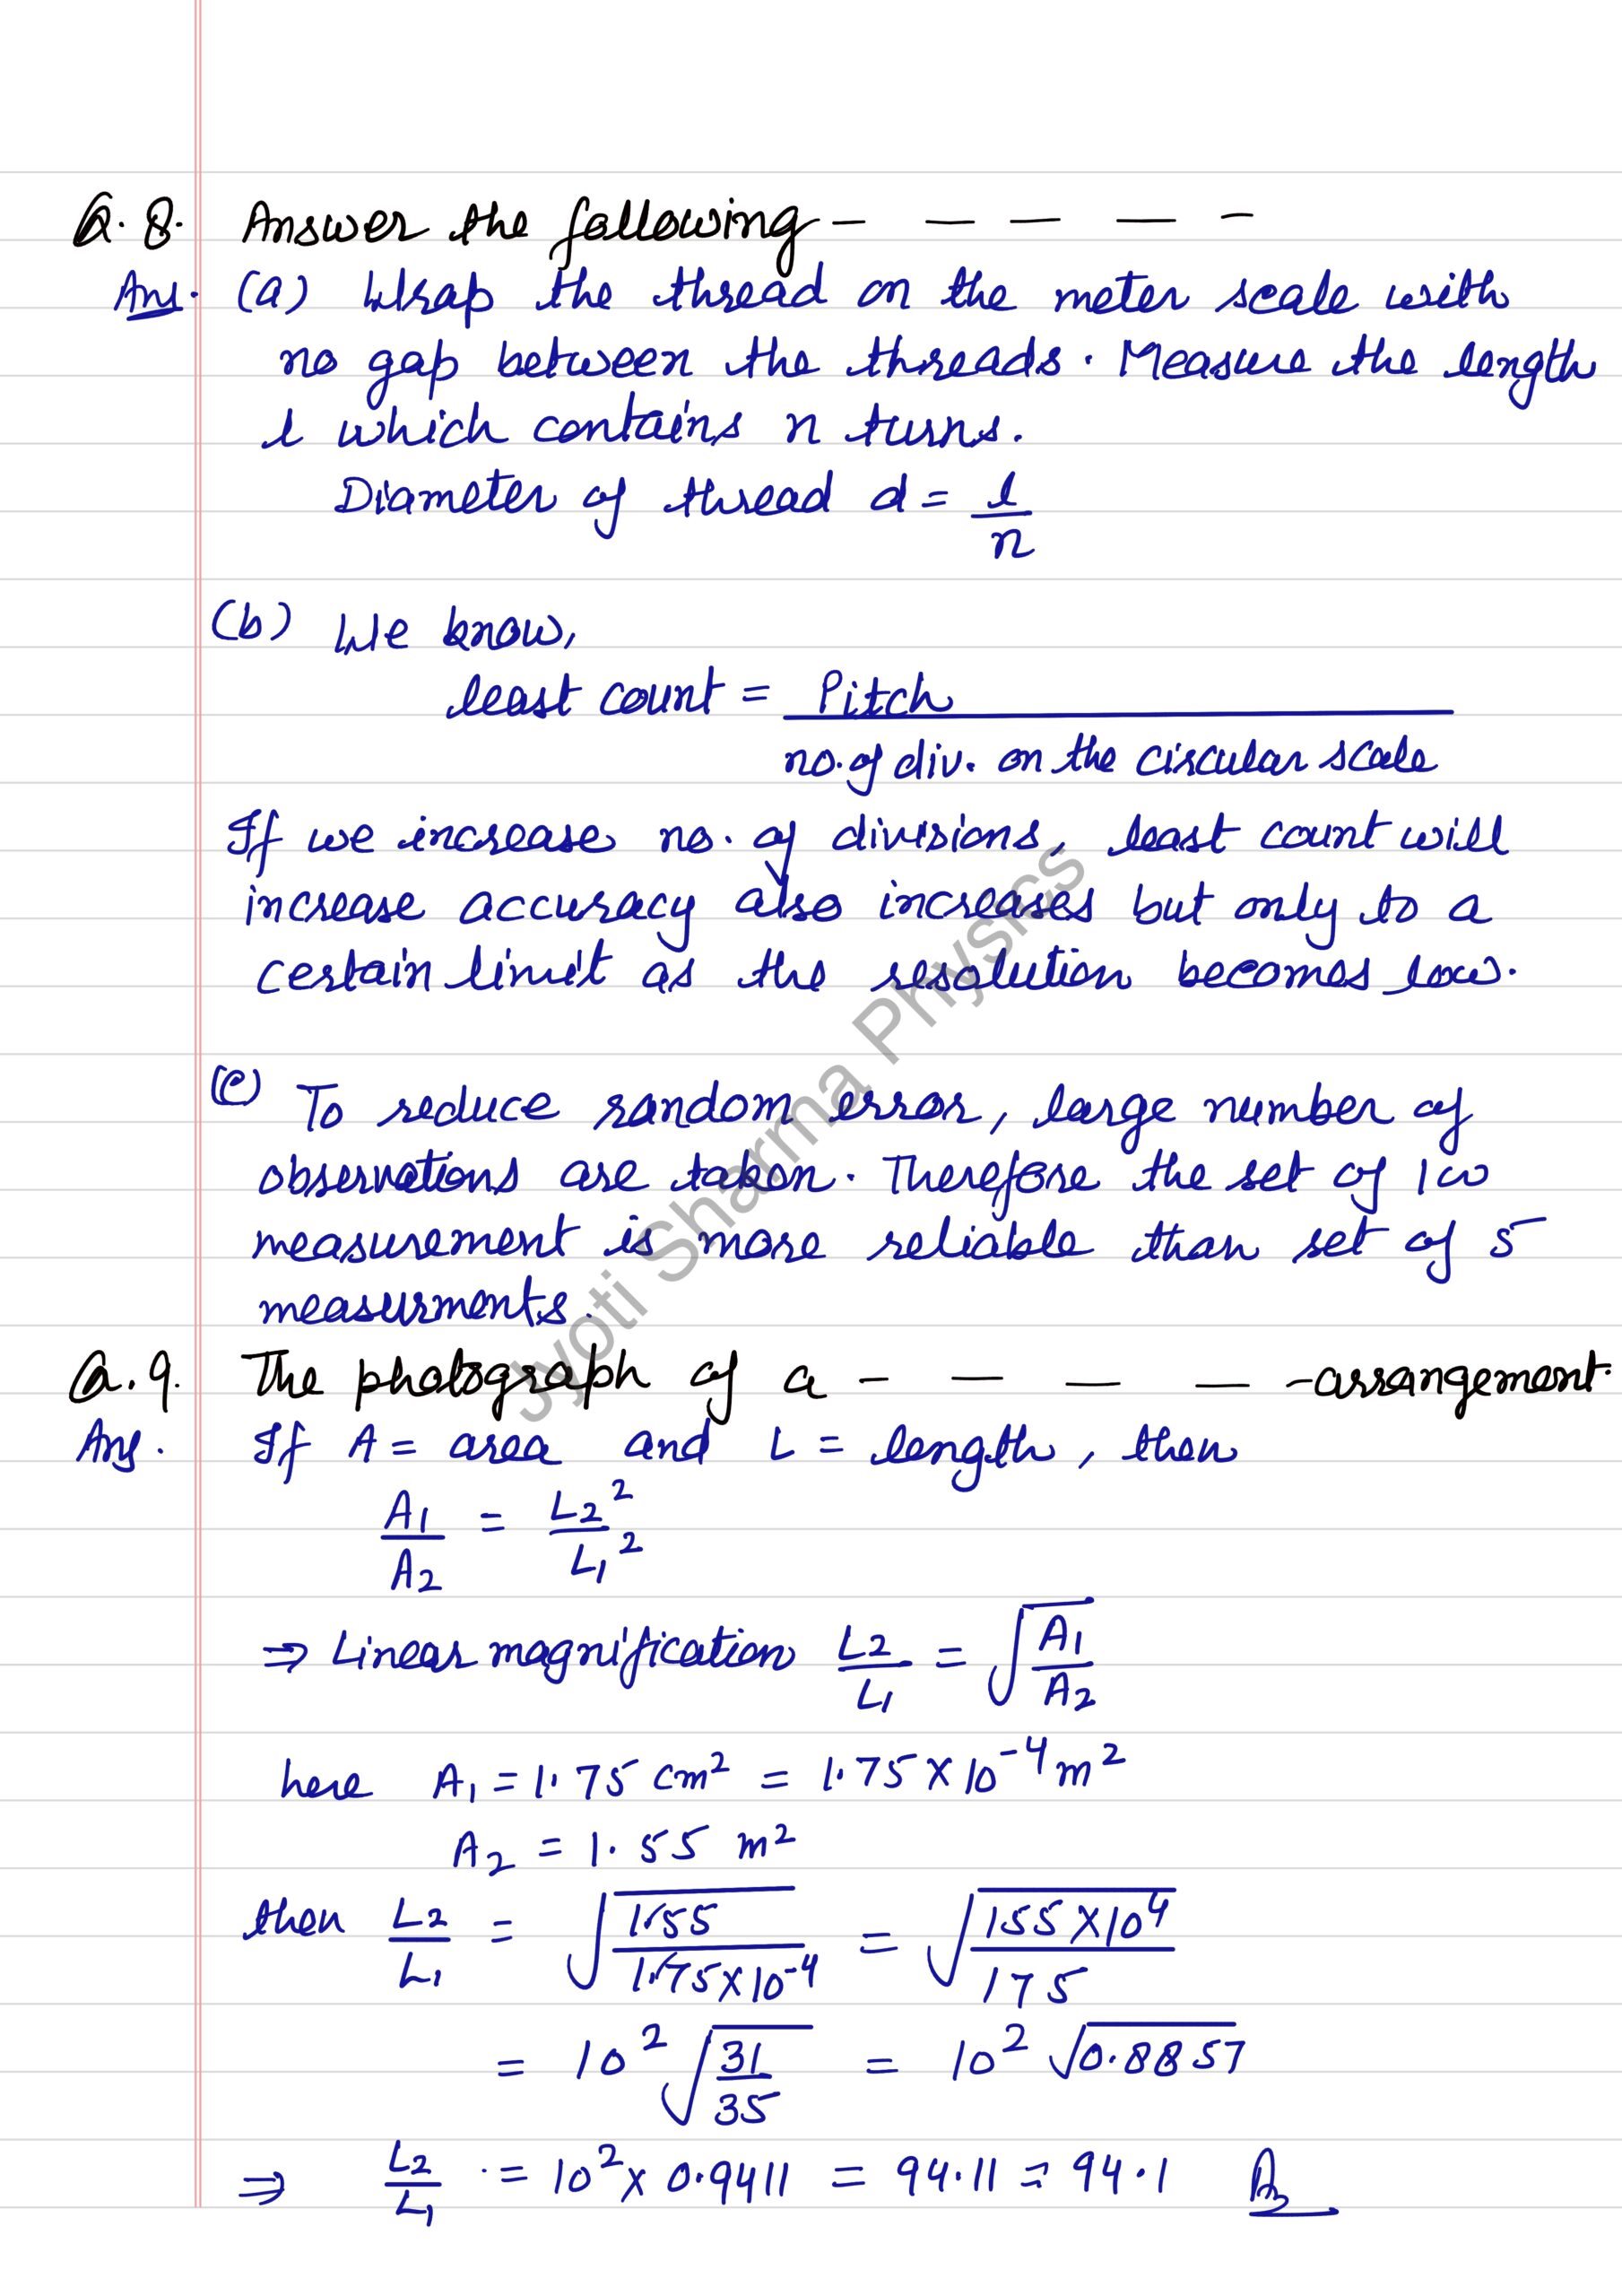 Q.8. Answer the following - - - - -
Ans. (a) Wrap the thread on the meter scale with
no gap between the threads. Measure the length
l which contains n turns.
Diameter of thread d = l/n
(b) We know,
least count = Pitch / no. of div. on the circular scale
If we increase no. of divisions, least count will
increase accuracy also increases but only to a
certain limit as the resolution becomes low.
(c) To reduce random error, large number of
observations are taken. Therefore the set of 100
measurement is more reliable than set of 5
measurments.
Q.9. The photograph of a - - - - - arrangement.
Ans. If A = area and L = length, then
A1/A2 = L2²/L1²
⇒ Linear magnification L2/L1 = √(A1/A2)
here A1 = 1.75 cm² = 1.75 × 10⁻⁴ m²
A2 = 1.55 m²
then L2/L1 = √(1.55/1.75×10⁻⁴) = √(155×10⁴/175)
= 10² √(31/35) = 10² √0.8857
⇒ L2/L1 = 10² × 0.9411 = 94.11 = 94.1
Jyoti Sharma Physics